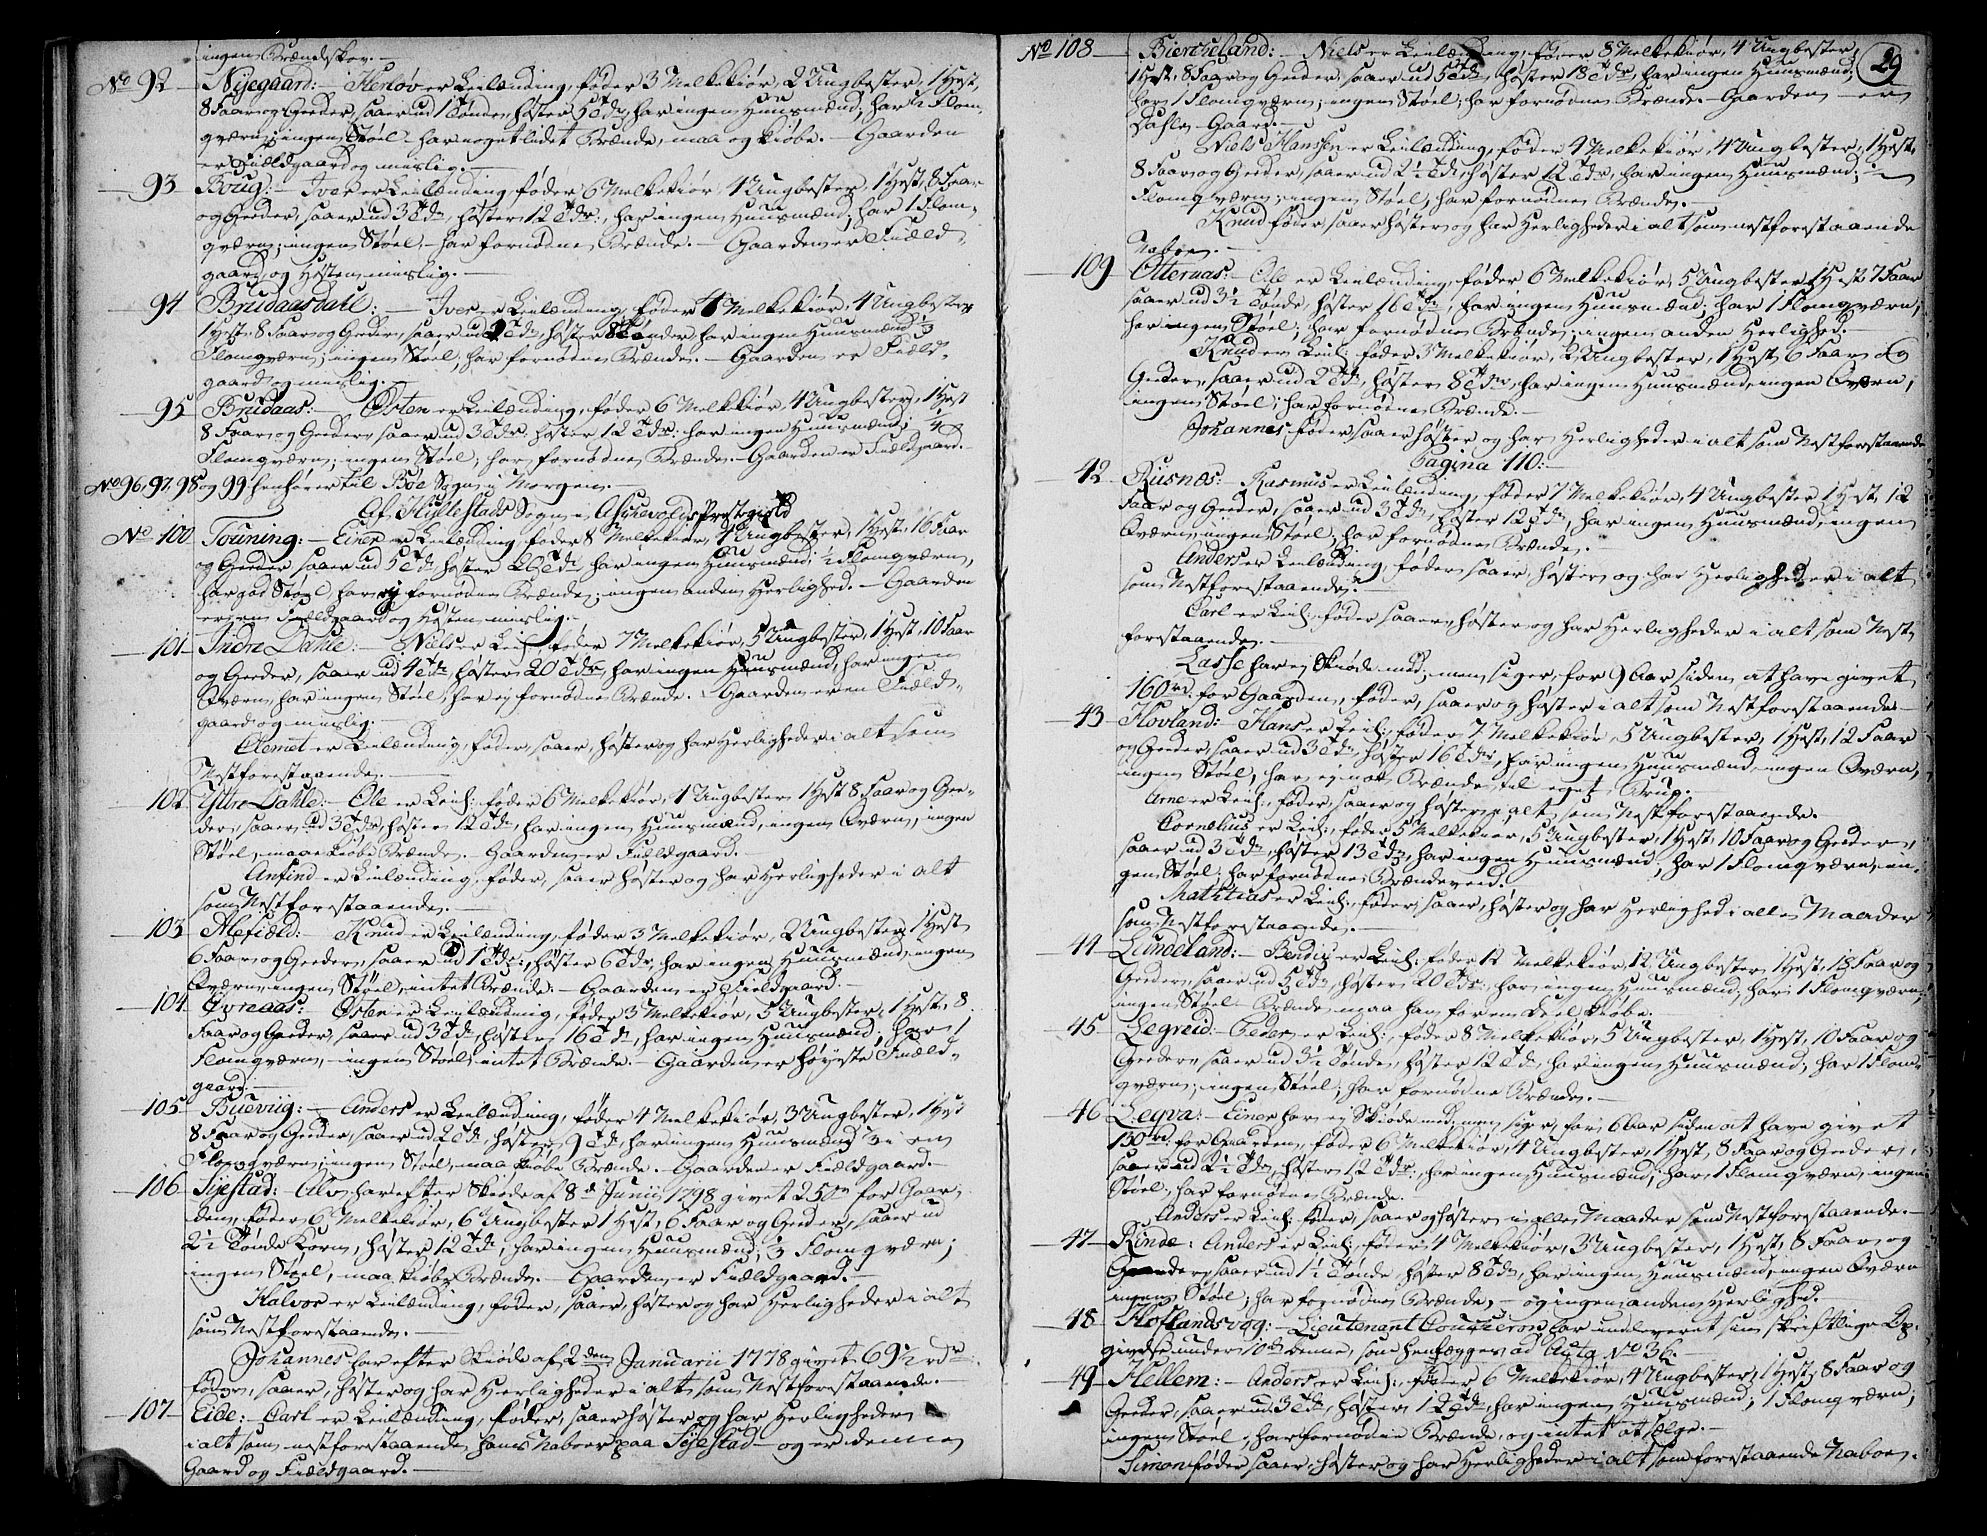 ingen Brændskov.
No 92 Nyegaard: Herlov er Leilænding, føder 3 Melkekiør, 2 Ungbester, 1 Hest,
8 Faar og Geeder, saaer ud 1 Tønde, høster 5 Tdr, har ingen Huusmænd; har ½ Flom-
qværn; ingen Støel – har noget lidet Brænde, maa og kiøbe. – Gaarden
er Fieldgaard og mislig.
93 Boug: – Iver er Leilænding, føder 6 Melkekiør, 4 Ungbester, 1 Hest, 8 Faar
og Geeder, saaer ud 3 Tdr, høster 12 Tdr, har ingen Huusmænd; har 1 Flom-
qværn; ingen Støel, – har fornødne Brænde. – Gaarden er Field-
gaard, og Høsten mislig. –
94 Brudaasdahl: – Iver er Leilænding, føder 4 Melkekiør, 4 Ungbester,
1 Hest, 8 Faar og Geeder, saaer ud 2 Tdr, høster 8 Tønder, har ingen Huusmænd, ⅓
Flomqværn; ingen Støel, har fornødne Brænde. – Gaarden er Field-
gaard og mislig. –
95 Brudaas: – Østen er Leilænding, føder 6 Melkekiør, 4 Ungbester, 1 Hest
8 Faar og Geeder, saaer ud 3 Tdr: høster 12 Tdr: har ingen Huusmænd; ¼
Flomqværn; ingen Støel; har fornødne Brænde. – Gaarden er Fieldgaard. –
No 96, 97, 98 og 99 henhører til Bøe Sogn i Morgen. –
Af Hyllestads Sogn i Aschevolds Præstegield
No 100 Touning: – Einer er Leilænding, føder 8 Melkekiør, 4 Ungbester, 1 Hest, 16 Faar
og Geeder saaer ud 5 Tdr høster 20 Tdr, har ingen Huusmænd; ½ Flomqværn,
har god Støel, har ey fornødne Brænde; ingen anden Herlighed. – Gaarden
er en Fieldgaard og Høsten mislig.
101 Indre Dahle: – Niels er Leil:, føder 7 Melkekiør, 5 Ungbester, 1 Hest, 10 Faar
og Geeder, saaer ud 4 Tdr høster 20 Tdr, har ingen Huusmænd, har ingen
Qværn, har ingen Støel, har ey fornødne Brænde. – Gaarden er en Field-
gaard og mislig. –
Clemet er Leilænding, føder, saaer, høster og har Herligheder i alt som
Nestforestaaende. –
102 Ytre Dahle: – Ole er Leil: føder 6 Melkekiør, 4 Ungbester 1 Hest 8 Faar og Gee-
der, saaer ud 3 Tdr høster 12 Tdr, har ingen Huusmænd, ingen Qværn, ingen
Støel, maae kiøbe Brænde. – Gaarden er Fieldgaard. –
Anfind er Leilænding, føder, saaer høster og har Herligheder i alt
som Nestforestaaende. –
103 Alefield: – Knud er Leilænding, føder 3 Melkekiør, 2 Ungbester, 1 Hest
6 Faar og Geeder, saaer ud 1 Tdr:, høster 6 Tdr, har ingen Huusmænd, ingen
Qværn, ingen Støel, intet Brænde. – Gaarden er Fieldgaard. –
104 Øvreaas: Østen er Leilænding, føder 3 Melkekiør, 5 Ungbester, 1 Hest, 8
Faar og Geeder, saaer ud 3 Tdr, høster 16 Tdr, har ingen Huusmænd; har 1
Flomqværn, – ingen Støel, intet Brænde – Gaarden er høyeste Field-
gaard. –
105 Buevug: – Anders er Leilænding, føder 4 Melkekiør, 3 Ungbester, 1 Hest
8 Faar og Geeder, saaer ud 2 Tdr, høster 9 Tdr, har ingen Huusmænd ⅓ i en
Flomqværn; ingen Støel, maa kiøbe Brænde. Gaarden er Fieldgaard. –
106 Syestad: – Alv, har efter Skiøde af 8d Junii 1798 givet 250 rd for Gaar-
den, føder 6 Melkekiør, 6 Ungbester 1 Hest, 6 Faar og Geeder, saaer ud
2½ Tønde Korn, høster 12 Tdr, har ingen Huusmænd; ⅓ Flomqværn;
ingen Støel, maa kiøbe Brænde. – Gaarden er Fieldgaard. –
Halvor er Leilænding, føder, saaer, høster og har Herligheder i alt
som Nestforestaaende. –
Johannes har efter Skiøde af 2den Januarii 1778 givet 69½ rdr:
føder, saaer, høster og har Herligheder i alt som Nestforestaaende. –
107 Eide: – Carl er Leilænding, føder, saaer høster og har Herligheder
i alt som nestforestaaende hans Naboer paa Syestad – og er denne
Gaard og Fieldgaard. –
29
No 108 Biercheland: – Niels er Leilænding, føder 8 Melkekiør, 4 Ungbester,
1 Hest, 8 Faar og Geeder, saaer ud 5 Tdr, høster 18 Tdr, har ingen Huusmænd,
har 1 Flomqværn; ingen Støel; har fornødne Brænde. – Gaarden er
Dahle-Gaard. –
Niels Hansen er Leilænding, føder 4 Melkekiør, 4 Ungbester, 1 Hest,
8 Faar og Geeder, saaer ud 2½ Tdr, høster 12 Tdr, har ingen Huusmænd;
Flomqværn, ingen Støel, har fornødne Brænde. –
Knud føder, saaer høster og har Herligheder i alt som nestforestaaende
Naboe. –
109 Otteraas: – Ole er Leilænding, føder 6 Melkekiør, 5 Ungbester, 1 Hest 7 Faar
saaer ud 3½ Tønde, høster 16 Tdr, har ingen Huusmænd; har 1 Flomqværn;
har ingen Støel; har fornødne Brænde; ingen anden Herlighed. –
Knud er Leil: føder 3 Melkekiør, 2 Ungbester, 1 Hest, 6 Faar og
Geeder, saaer ud 2 Tdr, høster 8 Tdr, har ingen Huusmænd, ingen Qværn,
ingen Støel; har fornødne Brænde. –
Johannes føder saaer høster og har Herligheder i alt som Nestforestaaende
Pagina 110: –
42 Risnæs: Rasmus er Leilænding, føder 7 Melkekiør, 4 Ungbester 1 Hest, 12
Faar og Geeder, saaer ud 3 Tdr, høster 12 Tdr, har ingen Huusmænd, ingen
Qværn, ingen Støel; har fornødne Brænde. –
Anders er Leilænding, føder, saaer, høster og har Herligheder i alt
som Nestforestaaende. –
Carl er Leil: føder saaer, høster og har Herligheder i alt som Nest-
forestaaende. –
Lasse har ej Skiøde med; men siger, for 9 Aar siden at have givet
160 rd for Gaarden, føder, saaer og høster i alt som Nestforestaaende –
43 Hovland: Hans er Leil:, føder 7 Melkekiør, 5 Ungbester, 1 Hest, 12 Faar
og Geeder, saaer ud 3 Tdr, høster 16 Tdr, har ingen Huusmænd, ingen Qværn,
ingen Støel, har ey nok Brænde til eget Brug. –
Arne er Leil:, føder, saaer og høster i alt som Nestforestaaende.
Cornelius er Leil:, føder 5 Melkekiør, 5 Ungbester, 1 Hest, 10 Faar og Geeder,
saaer ud 3 Tdr, høster 13 Tdr, har ingen Huusmænd, har 1 Flomqværn, in-
gen Støel, har fornødne Brændeveed. –
Mathias er Leil:, føder, saaer, høster og har Herlighed i alle Maader
som Nestforestaaende. –
44 Lundeland: – Bendix er Leil: føder 12 Melkekiør, 12 Ungbester 1 Hest, 18 Faar og
Geeder, saaer ud 5 Tdr, høster 20 Tdr, har ingen Huusmænd, har 1 Flomqværn;
ingen Støel – Brænde maa han for en Deel kiøbe. –
45 Legreid: – Peder er Leil:, føder 8 Melkekiør, 5 Ungbester, 1 Hest, 10 Faar og
Geeder, saaer ud 3½ Tønde, høster 12 Tdr, har ingen Huusmænd, har 1 Flom-
qværn; ingen Støel; har fornødne Brænde. –
46 Legva: – Einer har ej Skiøde med, men siger, for 6 Aar siden at have givet
130 rd for Gaarden, føder 6 Melkekiør, 4 Ungbester, 1 Hest, 8 Faar og Geeder,
saaer ud 2½ Tdr, høster 12 Tdr, har ingen Huusmænd; har 1 Flomqværn, ingen
Støel, har fornødne Brænde.
Anders er Leil: føder, saaer og høster i alle Maader som Nestforestaaende. –
47 Rinde: Anders er Leil:, føder 4 Melkekiør, 3 Ungbester, 1 Hest, 8 Faar og
Geeder, saaer ud 1½ Tønde, høster 8 Tdr, har ingen Huusmænd, ingen Qværn
ingen Støel, har fornødne Brænde, – og ingen anden Herlighed.
48 Hoflandsvog: – Lieutenant har indleveret sin skriftlige Op-
givelse under 10de denne, som henlægges ad Acta No 36 –
49 Hellem: – Anders er Leil:, føder 6 Melkekiør, 4 Ungbester, 1 Hest, 8 Faar og
Geeder, saaer ud 3 Tdr, høster 12 Tdr, har ingen Huusmænd, 1 Flomqværn;
ingen Støel, har fornødne Brænde, og intet at sælge. –
Simon føder saaer, høster og har Herligheder i alt som forestaaende Naboe.